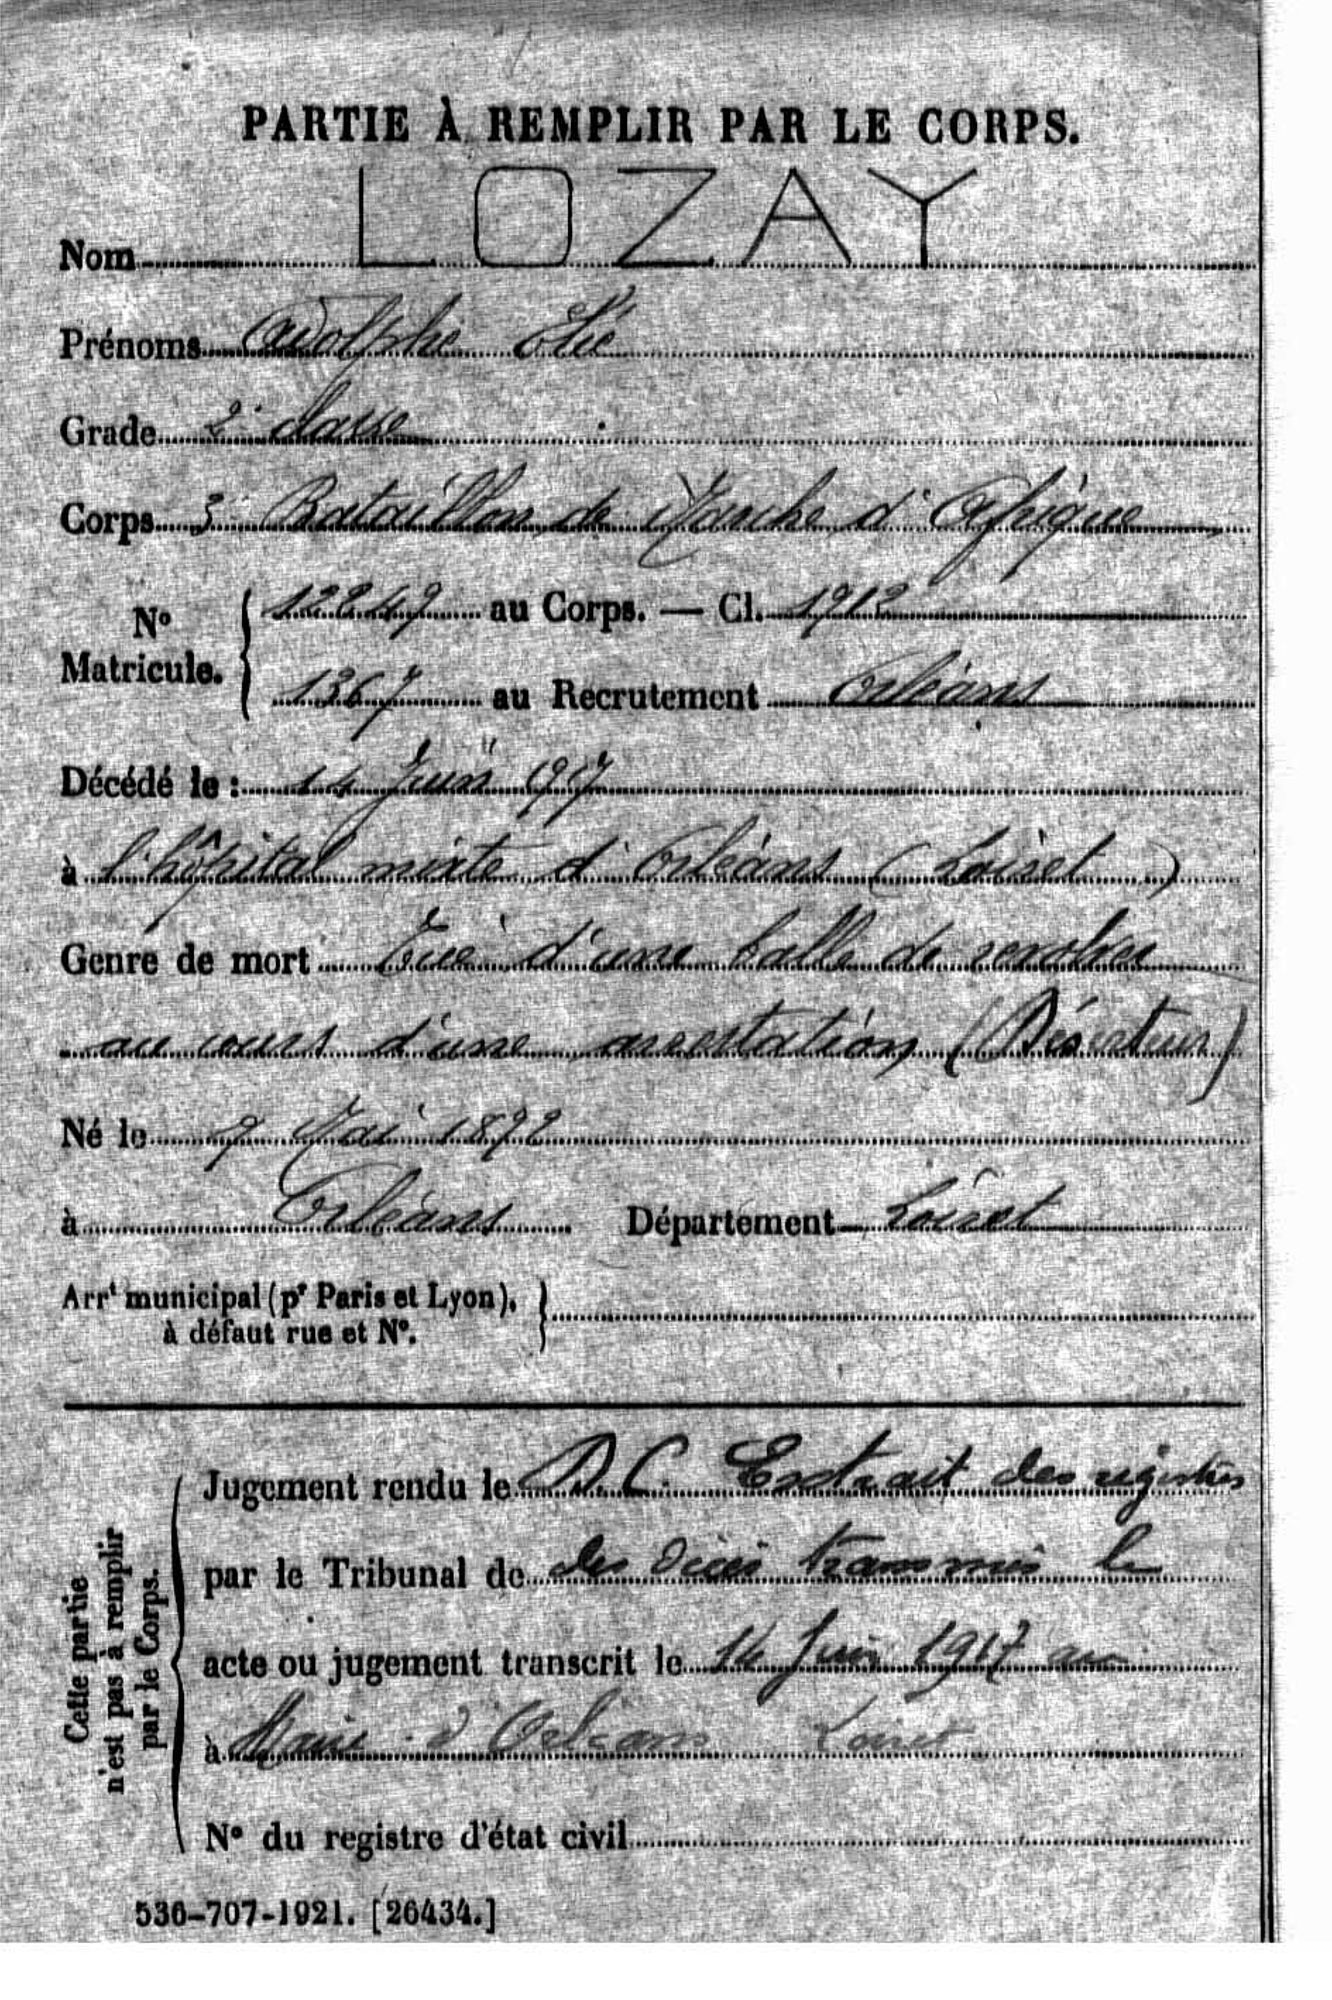 PARTIE À REMPLIR PAR LE CORPS.
Nom LOZAY
Prénoms Adolphe Elie
Grade 2e classe
Corps 3e Bataillon de Marche d'Afrique
No Matricule. 12249 au Corps. — Cl. 1912
1367 au Recrutement Orléans
Décédé le : 14 Juin 1917
à l'hôpital mixte d'Orléans (Loiret)
Genre de mort Tué d'une balle de revolver
au cours d'une arrestation (Déserteur)
Né le 7 Mai 1892
à Orléans Département Loiret
Arrt municipal (pr Paris et Lyon),
à défaut rue et No.
Cette partie
n'est pas à remplir
par le Corps.
Jugement rendu le D.C. Extrait des registres
par le Tribunal de des décès transmis le
acte ou jugement transcrit le 14 Juin 1917 au
à Maire d'Orléans Loiret
No du registre d'état civil
536-707-1921. [26434.]